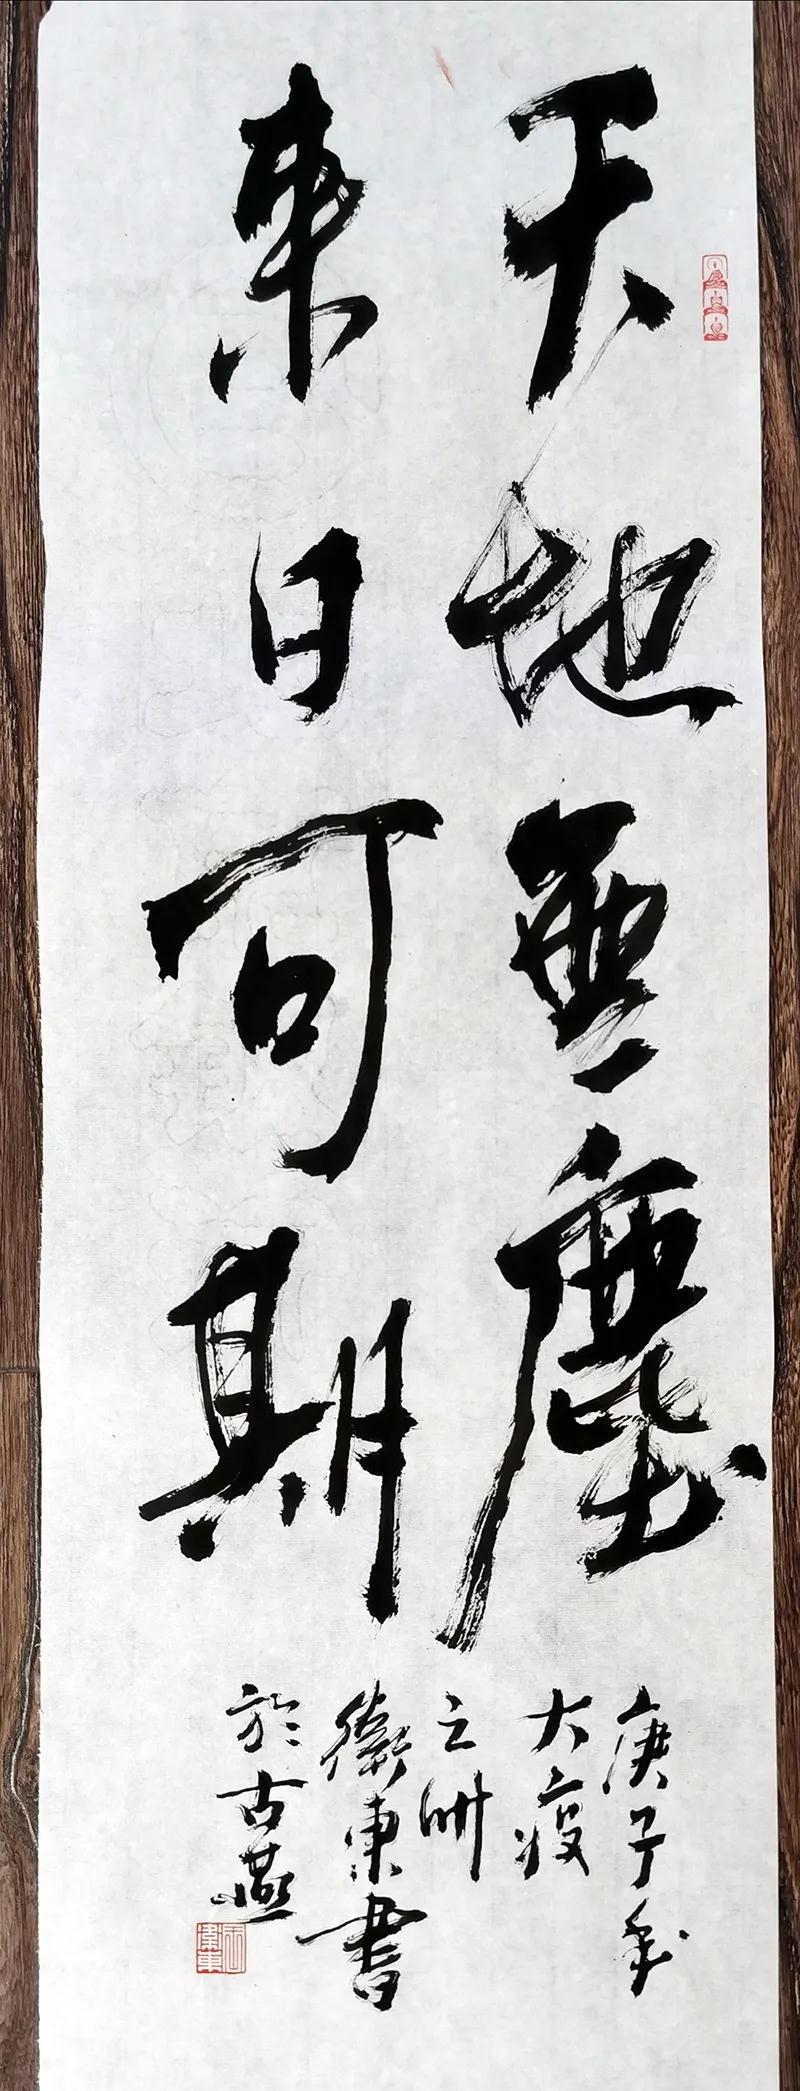 天地無塵
来日可期
庚子年
大疫
之時
衛東書
於古燕